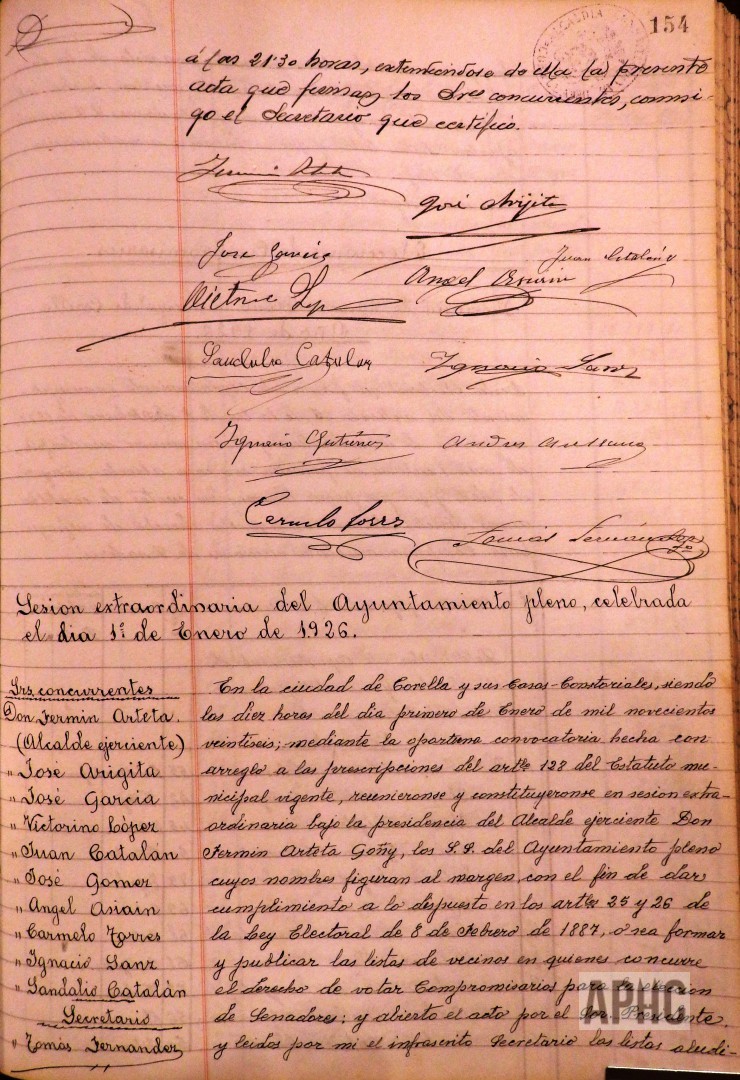 154
á las 21'30 horas, extendiéndose de ella la presente
acta que firman los Sres concurrentes, conmi-
go el Secretario que certifico.
José Arijita
José García
Juan Catalán
Angel Asiain
Victorino
Sandalio Catalán
Ignacio Sanz
Ignacio Gutiérrez
Andres Arellano
Carmelo Torres
Tomás Fernández
Sesion extraordinaria del Ayuntamiento pleno, celebrada
el dia 1º de Enero de 1.926.
Srs. concurrentes
Don Fermin Arteta.
(Alcalde ejerciente)
" José Arigita
" José Garcia
" Victorino López
" Juan Catalán
" José Gomez
" Angel Asiain
" Carmelo Torres
" Ignacio Sanz
" Sandalio Catalán
Secretario
" Tomás Fernandez
En la ciudad de Corella y sus Casas-Constoriales, siendo
las diez horas del dia primero de Enero de mil novecientos
veintiseis; mediante la oportuna convocatoria hecha con
arreglo a las prescripciones del artº 128 del Estatuto mu-
nicipal vigente, reunieronse y constituyeronse en sesion extra-
ordinaria bajo la presidencia del Alcalde ejerciente Don
Fermin Arteta Goñy, los S.S. del Ayuntamiento pleno
cuyos nombres figuran al margen, con el fin de dar
cumplimiento a lo dispuesto en los artºs 25 y 26 de
la Ley Electoral de 8 de Febrero de 1887, o sea formar
y publicar las listas de vecinos en quienes concurre
el derecho de votar Compromisarios para la eleccion
de Senadores; y abierto el acto por el Sor. Presidente
y leidos por mi el infrascrito Secretario las listas aludi-
APHC